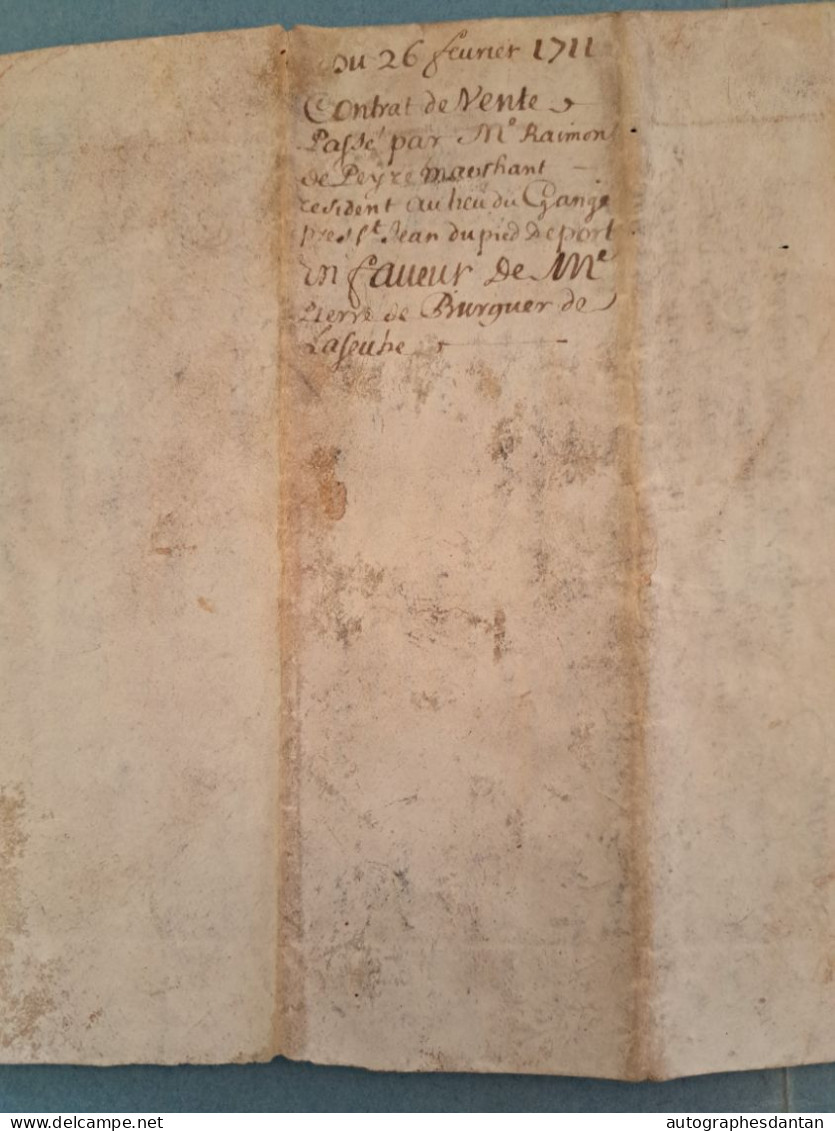 Du 26 feurier 1711
Contrat de Vente
Passé par Mᵉ Raimon
de Peyre marchant
resident au lieu du Gange
pres Sᵗ Jean du pied de port
En faueur de Mᵉ
Pierre de Burguer de
Laseuhe
www.delcampe.net
autographesdantan